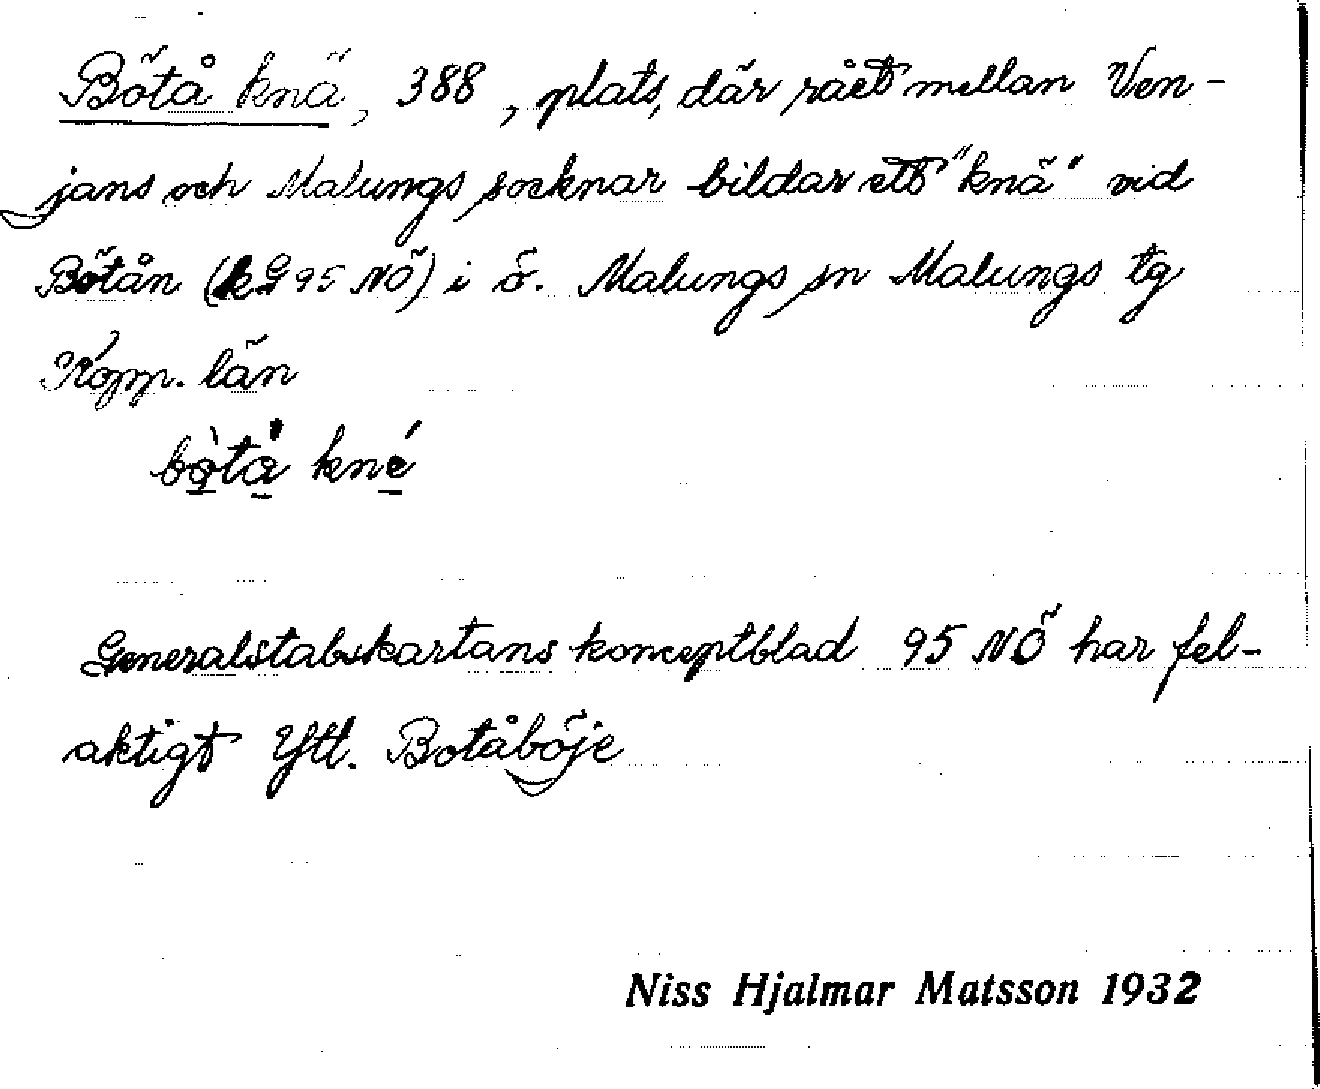 Bötå knä, 388, plats, där rået mellan Ven-
jans och Malungs socknar bildar ett "knä" vid
Bötån (kG 95 NÖ) i ö. Malungs sn Malungs tg
Kopp. län
bòtå kné
Generalstabskartans konceptblad 95 NÖ har fel-
aktigt Ytl. Botåböje
Niss Hjalmar Matsson 1932